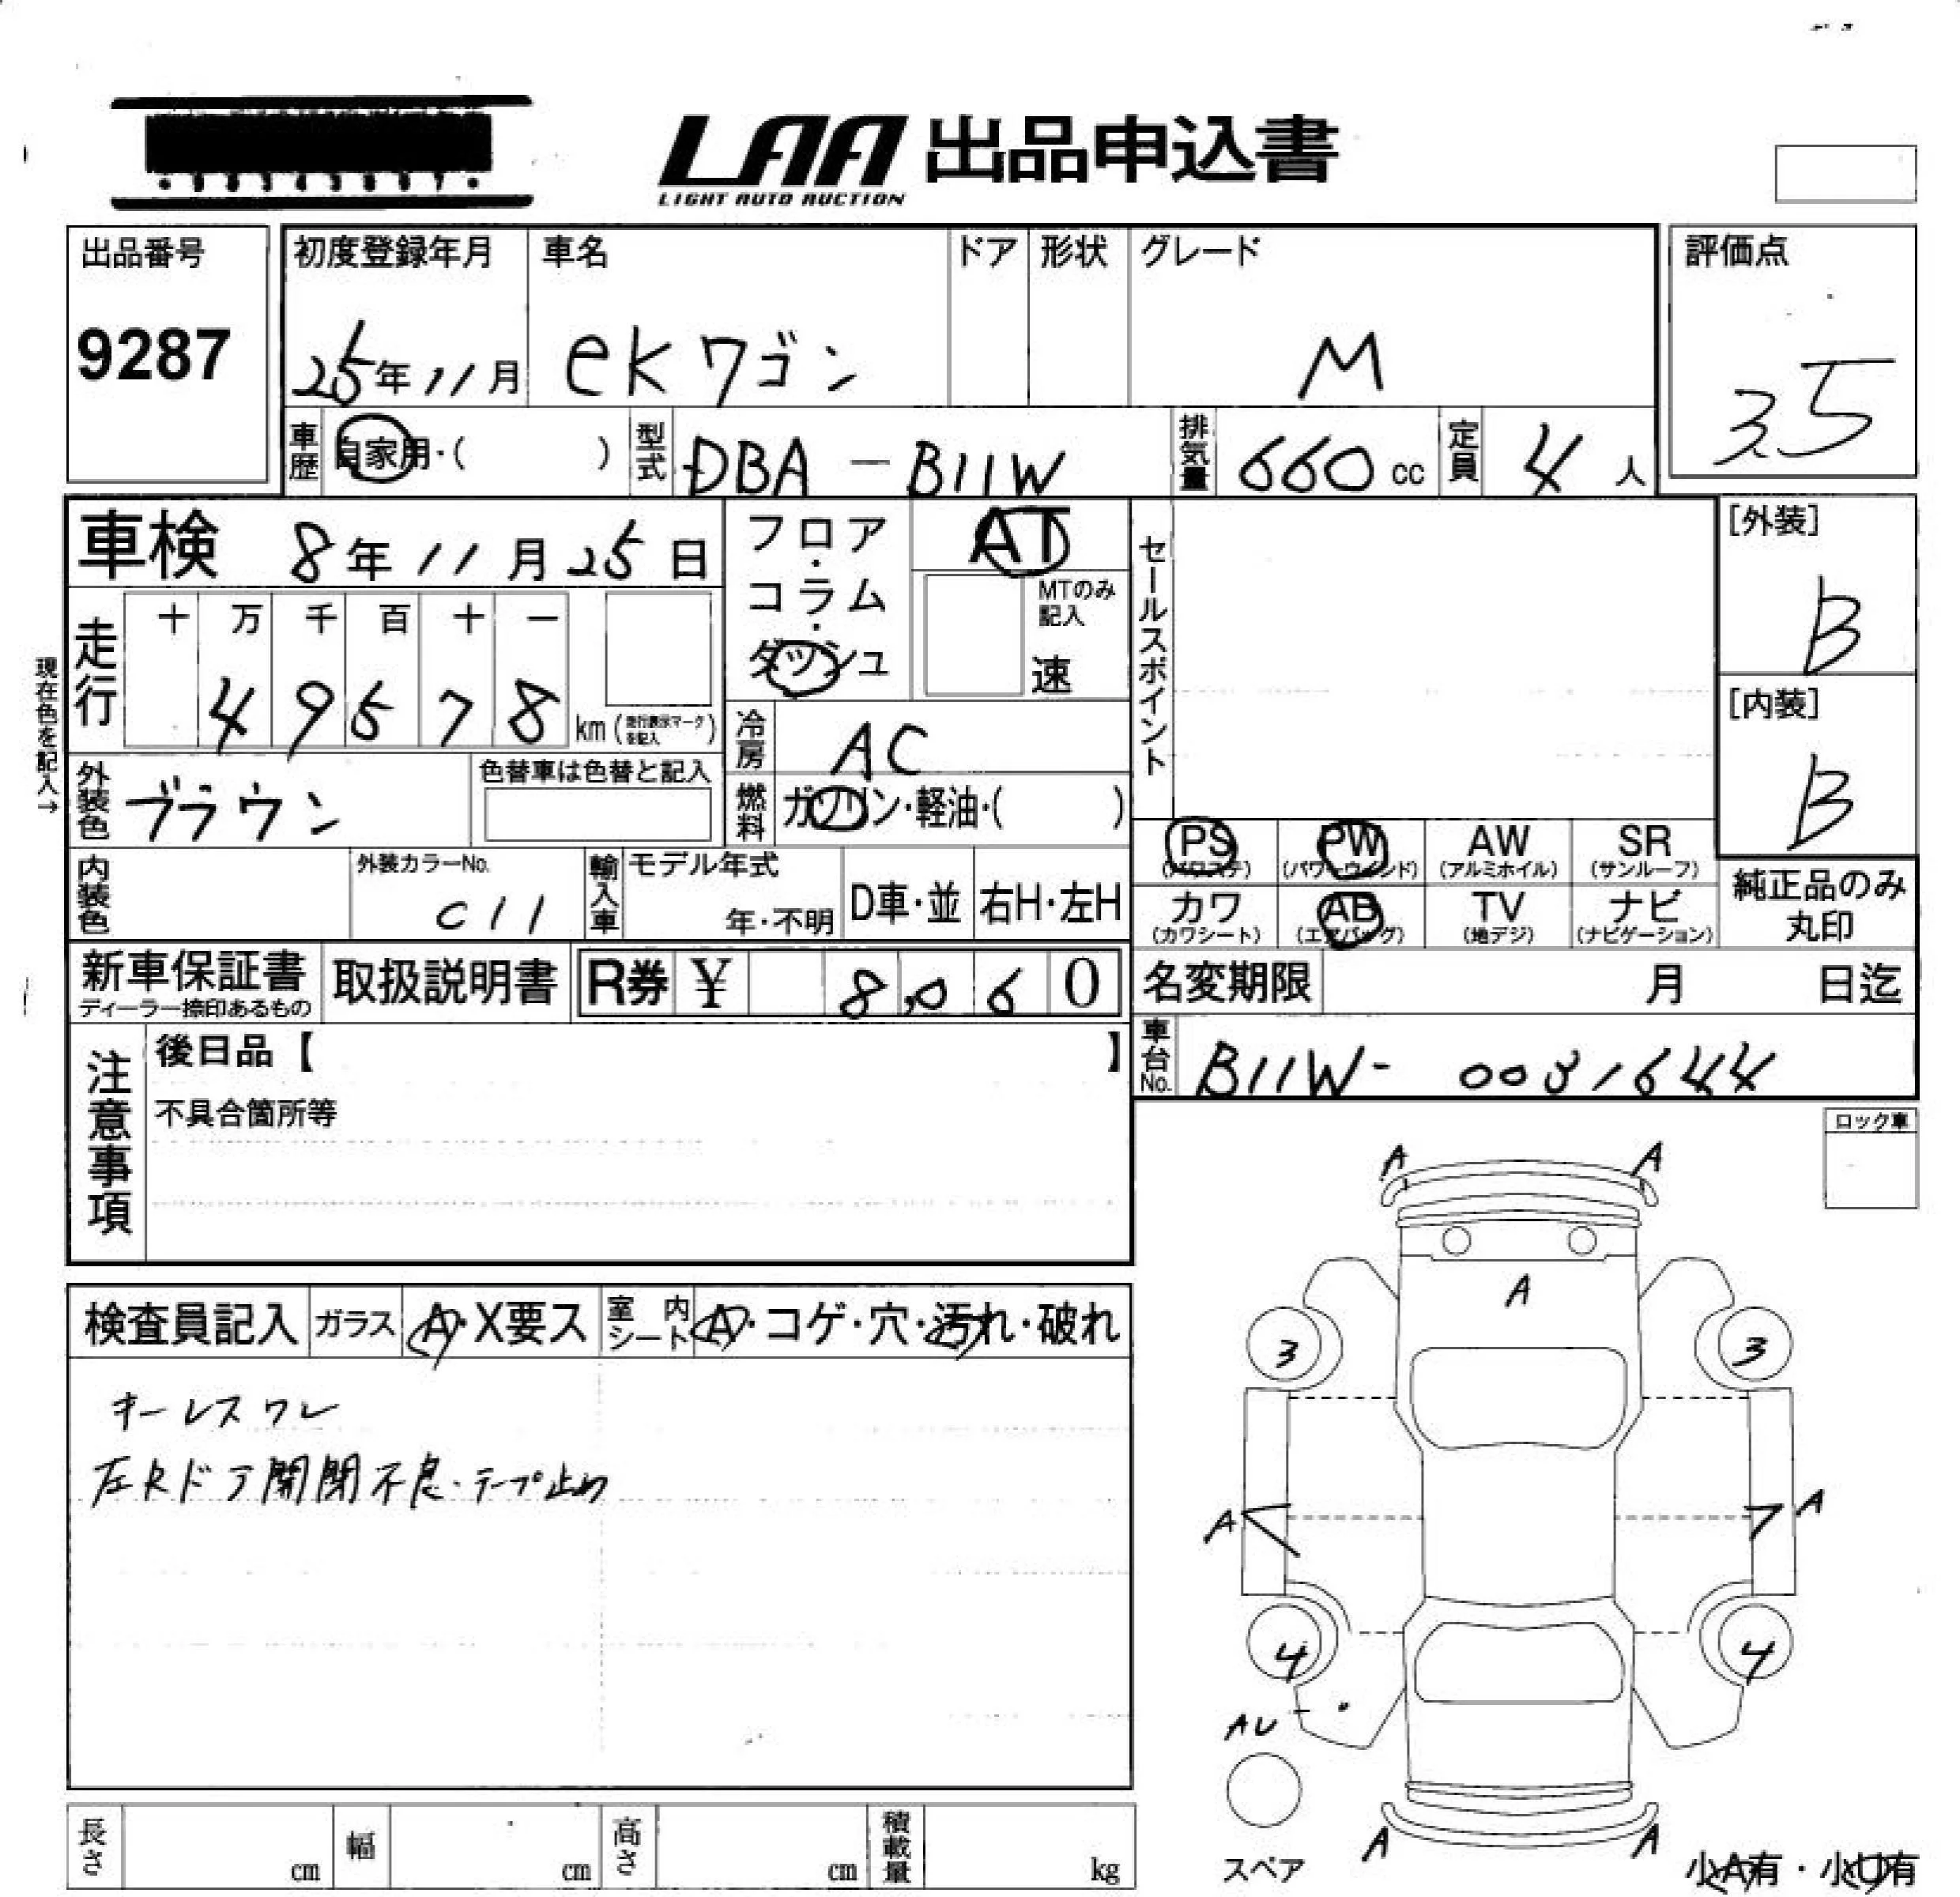 LAA 出品申込書
LIGHT AUTO AUCTION
出品番号
9287
初度登録年月
25年11月
車名
ekワゴン
ドア
形状
グレード
M
評価点
3.5
車歴 自家用・( )
型式 DBA-B11W
排気量 660 cc
定員 4 人
車検 8年11月25日
現在色を記入→
走行 十 万 千 百 十 一
4 9 5 7 8 km (走行表示マークを記入)
フロア・コラム・ダッシュ
AT
MTのみ記入
速
冷房 AC
セールスポイント
[外装]
B
[内装]
B
外装色 ブラウン
色替車は色替と記入
燃料 ガソリン・軽油・( )
内装色
外装カラーNo.
C11
輸入車 モデル年式
年・不明
D車・並 右H・左H
PS (パワステ) PW (パワーウィンド) AW (アルミホイル) SR (サンルーフ)
カワ (カワシート) AB (エアバッグ) TV (地デジ) ナビ (ナビゲーション)
純正品のみ
丸印
新車保証書
ディーラー捺印あるもの
取扱説明書
R券 ¥ 8,060
名変期限 月 日迄
車台No. B11W-0031644
注意事項
後日品【 】
不具合箇所等
ロック車
検査員記入 ガラス A・X要ス 室内シート A・コゲ・穴・汚れ・破れ
キーレスワレ
左Rドア開閉不良・テープ止め
A A
A
3 3
A A
4 4
AU
A A
スペア
小A有・小U有
長さ cm 幅 cm 高さ cm 積載量 kg